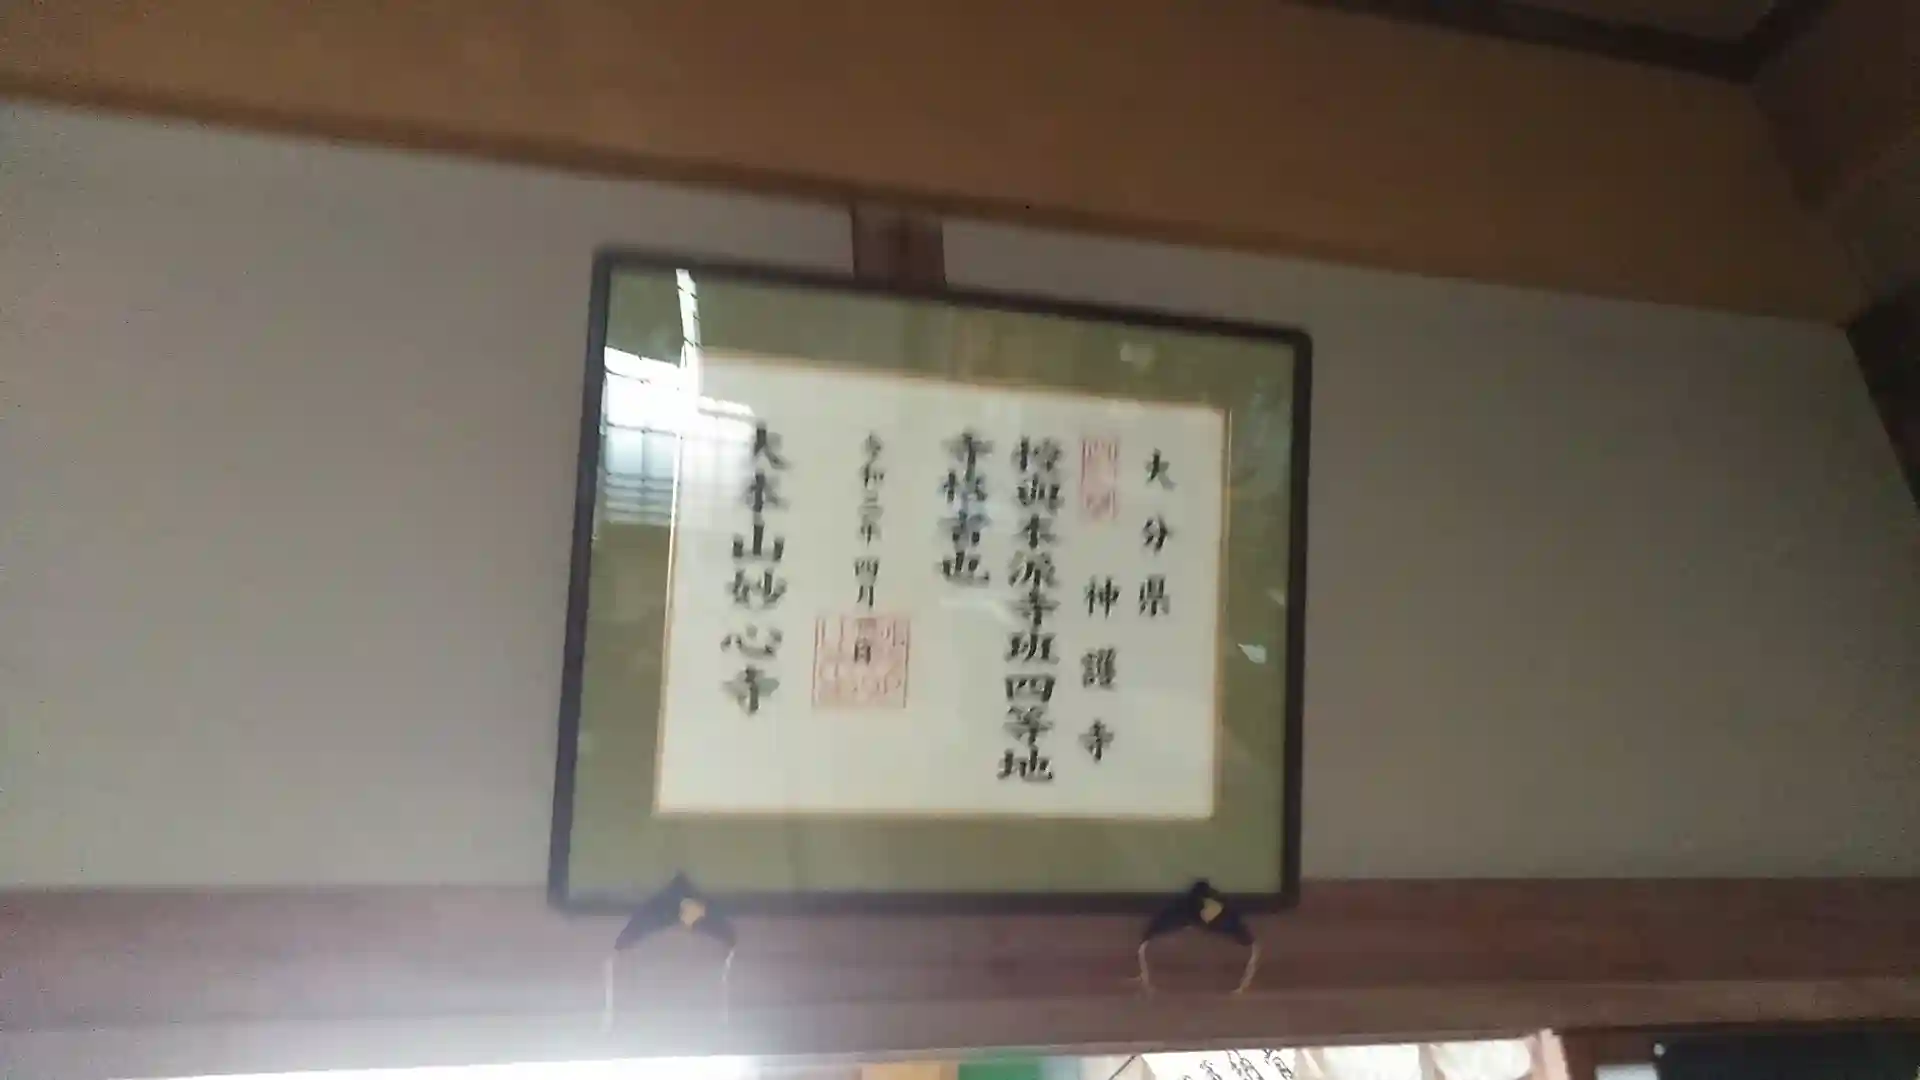 大分県
神護寺
授與本派寺班四等地
寺格者也
令和三年四月
大本山妙心寺